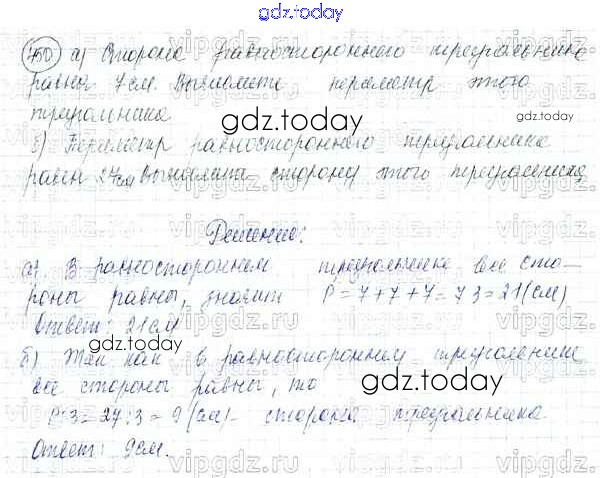 gdz.today
750 а) Сторона равностороннего треугольника
равна 7 см. Вычислите периметр этого
треугольника
gdz.today
б) Периметр равностороннего треугольника
равен 27 см Вычислите сторону этого треугольника
Решение:
а). В равностороннем треугольнике все сто-
роны равны, значит P=7+7+7=7·3=21(см)
Ответ: 21 см
gdz.today
б) Так как в равностороннем треугольнике
все стороны равны, то
gdz.today
P:3=27:3=9(см)- сторона треугольника
Ответ: 9см.
vipgdz.ru